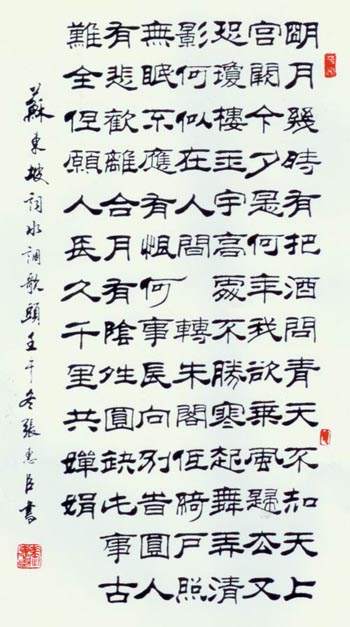 明月幾時有把酒問青天不知天上
宮闕今夕是何年我欲乘風歸去又
恐瓊樓玉宇高處不勝寒起舞弄清
影何似在人間 轉朱閣低綺戶照
無眠不應有恨何事長向別旹圓人
有悲歡離合月有陰夝圓缺此事古
難全但願人長久千里共嬋娟
蘇東坡詞水調歌頭壬午冬張惠臣書